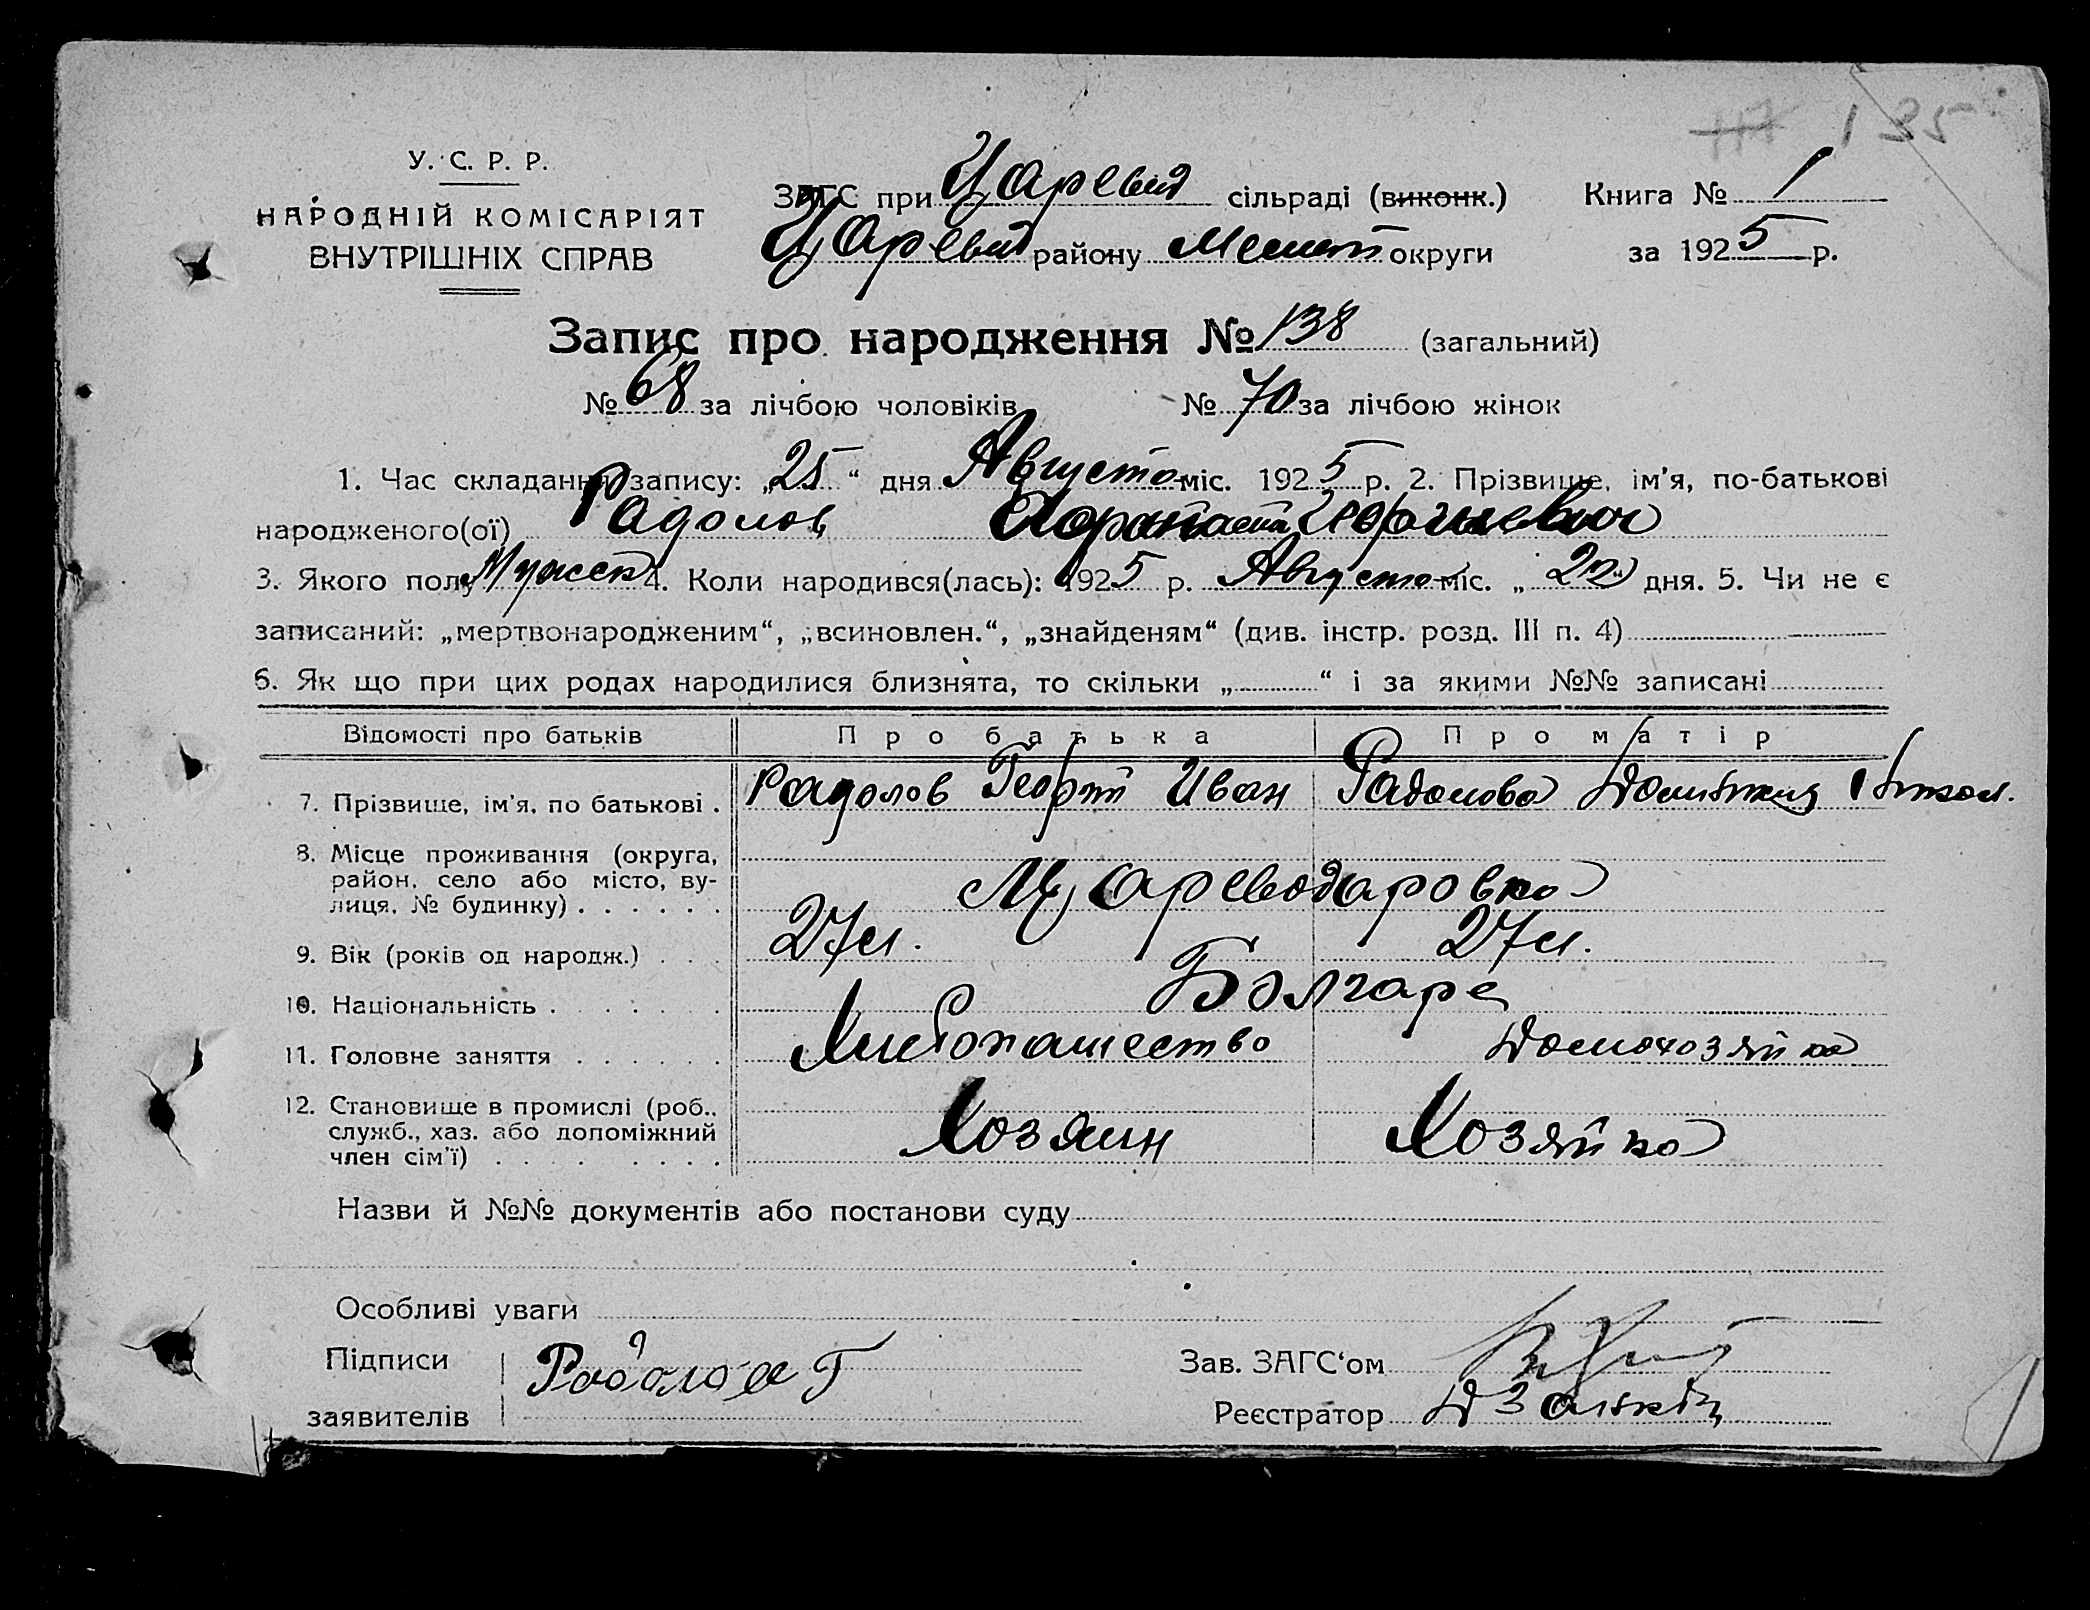 117 135
У. С. Р. Р.
НАРОДНІЙ КОМІСАРІЯТ
ВНУТРІШНІХ СПРАВ
ЗАГС при Царевид сільраді (виконк.) Книга № 1
Царевид району Мелит округи за 1925 р.
Запис про народження № 138 (загальний)
№ 68 за лічбою чоловіків № 70 за лічбою жінок
1. Час складання запису: „25“ дня Августа міс. 1925 р. 2. Прізвище, ім'я, по-батькові
народженого(ої) Радолов Георгиевич
3. Якого полу Мужск 4. Коли народився(лась): 1925 р. Августа міс. „22“ дня. 5. Чи не є
записаний: „мертвонародженим“, „всиновлен.“, „знайденям“ (див. інстр. розд. III п. 4)
6. Як що при цих родах народилися близнята, то скільки „ “ і за якими №№ записані
Відомості про батьків Про батька Про матір
7. Прізвище, ім'я, по батькові . Радолов Георгий Иван Радолова
8. Місце проживання (округа,
район, село або місто, ву-
лиця, № будинку) . . . . . . Цареводаровка
9. Вік (років од народж.) . . . 27 л. 27 л.
10. Національність . . . . . . Болгаре
11. Головне заняття . . . . . . Хлебопашество Домохозяйка
12. Становище в промислі (роб.,
служб., хаз. або допоміжний
член сім'ї) . . . . . . . . Хозяин Хозяйка
Назви й №№ документів або постанови суду
Особливі уваги
Підписи Радолов Г Зав. ЗАГС'ом
заявителів Реєстратор